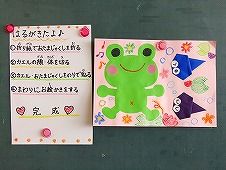 はるがきたよ♪
①折り紙でおたまじゃくしを折る
②カエルの顔・体を切る
③カエル・おたまじゃくしをのりで貼る
④まわりにお絵かきをする
完成